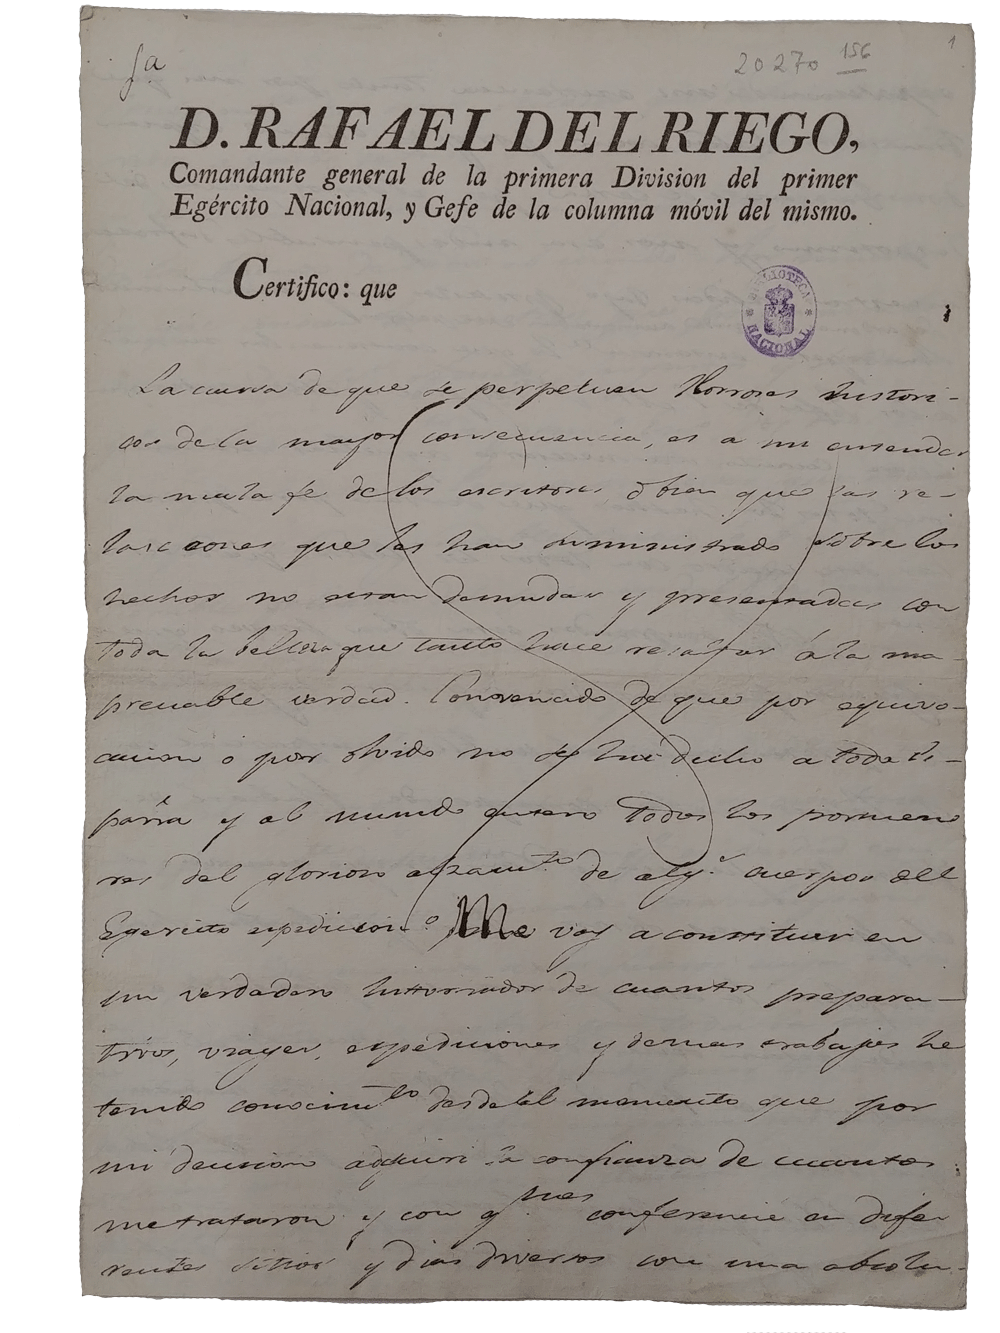 fa
20270 156
1
D. RAFAEL DEL RIEGO,
Comandante general de la primera Division del primer
Egército Nacional, y Gefe de la columna móvil del mismo.
Certifico: que
BIBLIOTECA NACIONAL
La causa de que se perpetuen Horrores histori-
cos de la mayor consecuencia, es a mi entender
la mala fe de los escritores o bien que las re-
lasciones que les han suministrado sobre los
hechos no sean desnudas y presentadas con
toda la belleza que tanto hace resaltar á la ina-
preciable verdad. Convencido de que por equivo-
cacion o por olvido no se ha dicho a toda Es-
paña y al mundo entero todos los pormeno
res del glorioso alzam.to de alg.s cuerpos del
Egercito expedicion.o Me voy a constituir en
un verdadero historiador de cuantos prepara-
tivos, viages, espediciones y demas trabajos he
tenido conocim.to desde el momento que por
mi decision adquiri la confianza de cuantos
me trataron y con q.nes conferencié en dife
rentes sitios y dias diversos con una absolu-